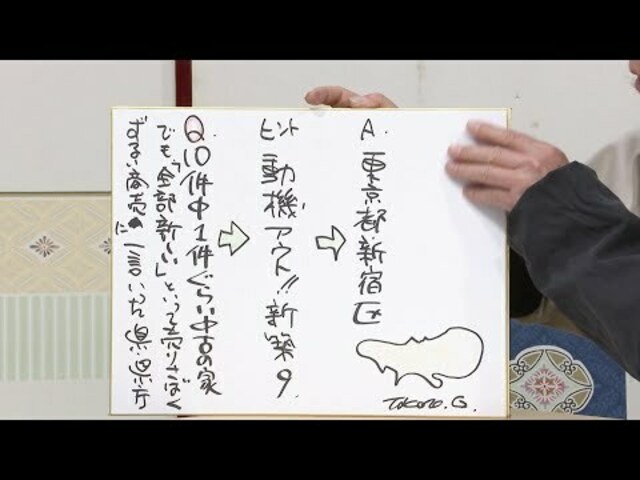 Q.10件中1件ぐらい中古の家
でも「全部新しい」といって売りさばく
ずるい商売に一言いった県県庁
ヒント 動機アウト!!新築9
A.東京都新宿区
Tokoro.G.